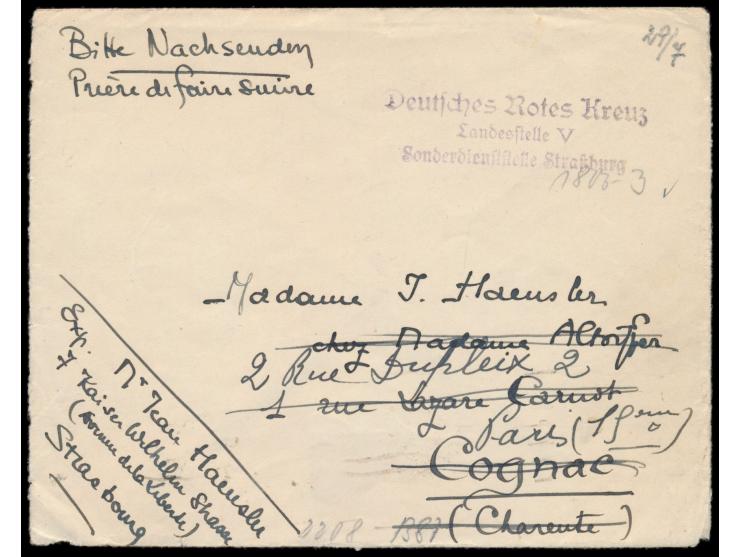 Bitte Nachsenden
Prière de faire suivre
29/7
Deutsches Rotes Kreuz
Landesstelle V
Sonderdienststelle Straßburg
1803-3
Madame J. Haensler
chez Madame Altorffer
2 Rue Dupleix 2
1 rue Lazare Carnot
Paris (15em)
Cognac
(Charente)
Exp. Mr Jean Haensler
7 Kaiser Wilhelm Strasse
(Avenue de la Liberté)
Strasbourg
2208 - 1387